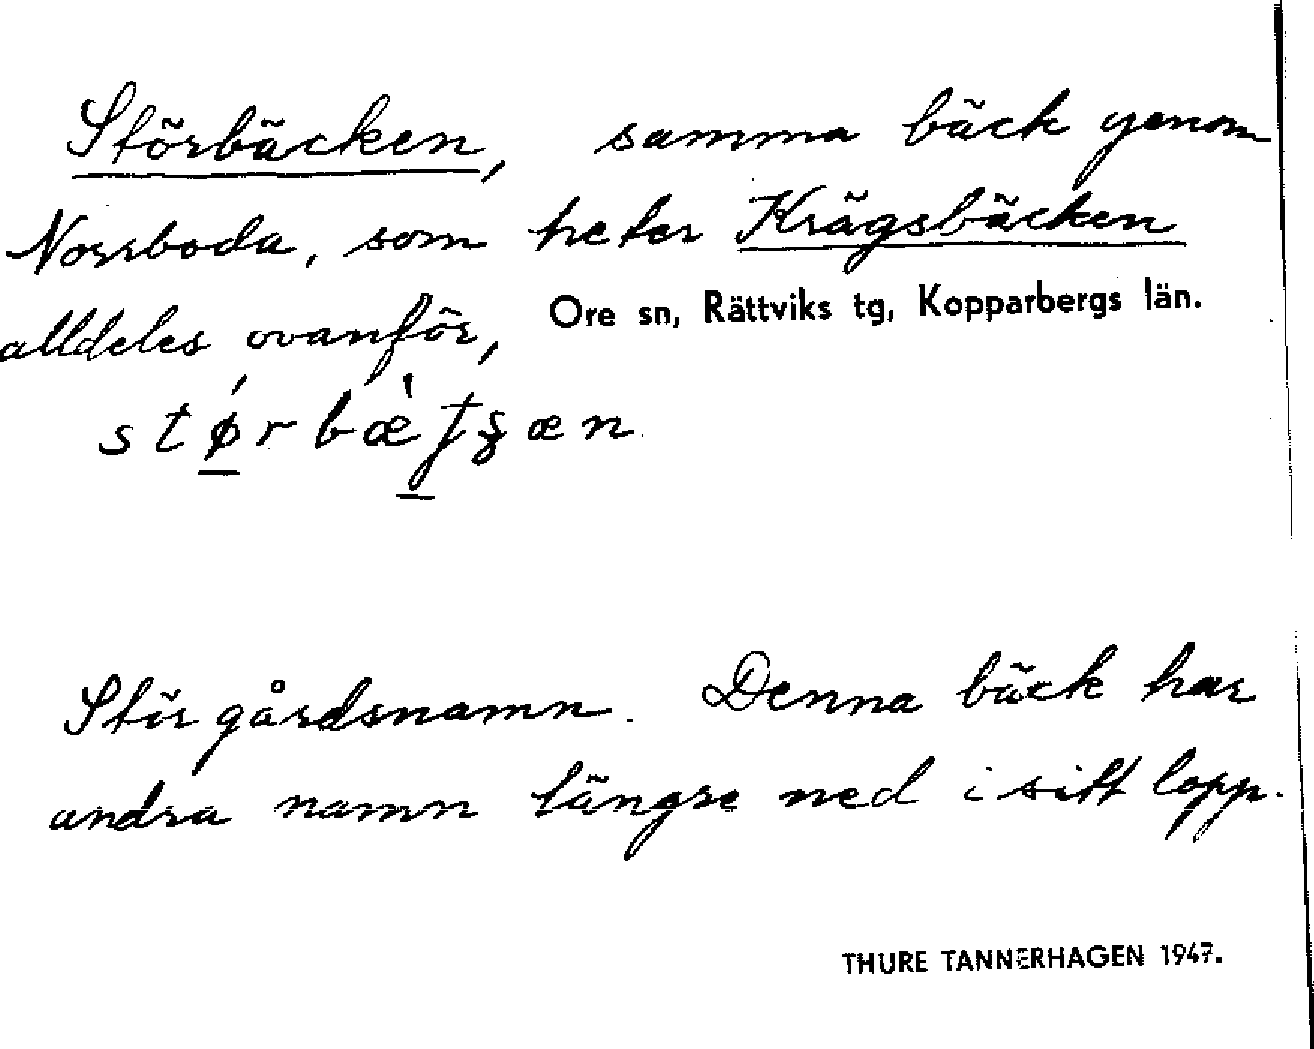 Störbäcken, samma bäck genom
Norrboda, som heter Krägsbäcken
alldeles ovanför,
Ore sn, Rättviks tg, Kopparbergs län.
Stör gårdsnamn. Denna bäck har
andra namn längre ned i sitt lopp.
THURE TANNERHAGEN 1947.